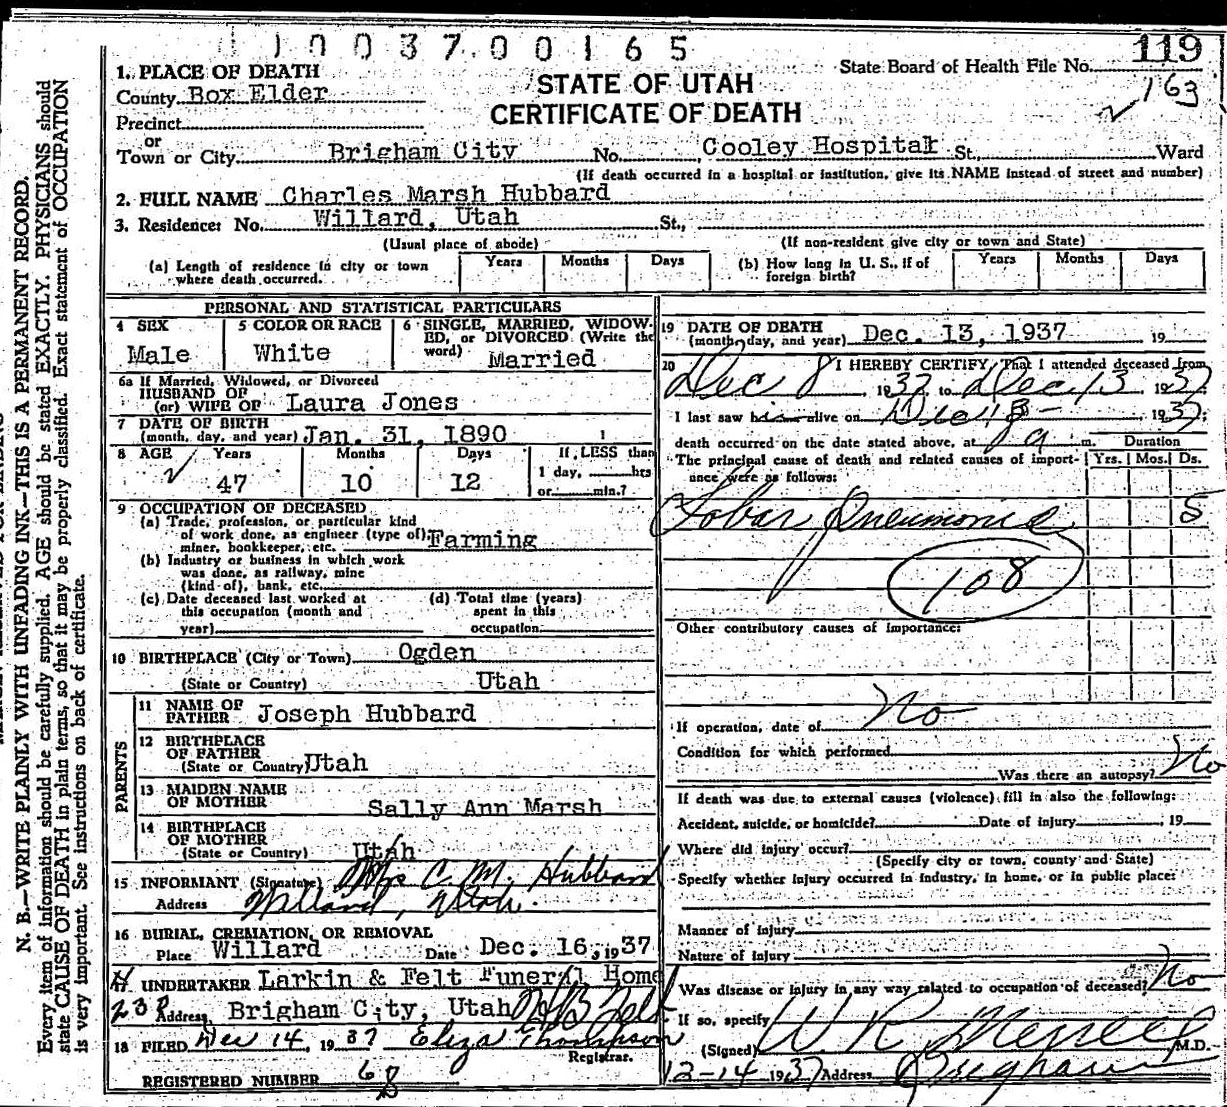 1003700165
119
State Board of Health File No.
163
1. PLACE OF DEATH
County Box Elder
STATE OF UTAH
CERTIFICATE OF DEATH
Precinct
or
Town or City Brigham City No. Cooley Hospital St., Ward
(If death occurred in a hospital or institution, give its NAME instead of street and number)
2. FULL NAME Charles Marsh Hubbard
3. Residence: No. Willard, Utah St.,
(Usual place of abode) (If non-resident give city or town and State)
(a) Length of residence in city or town where death occurred. Years Months Days
(b) How long in U. S., if of foreign birth? Years Months Days
PERSONAL AND STATISTICAL PARTICULARS
4 SEX Male
5 COLOR OR RACE White
6 SINGLE, MARRIED, WIDOW-
ED, or DIVORCED (Write the
word) Married
6a If Married, Widowed, or Divorced
HUSBAND OF
(or) WIFE OF Laura Jones
7 DATE OF BIRTH
(month, day, and year) Jan. 31, 1890
8 AGE Years Months Days If LESS than
47 10 12 1 day, hrs
or min.?
9 OCCUPATION OF DECEASED
(a) Trade, profession, or particular kind
of work done, as engineer (type of), Farming
miner, bookkeeper, etc.
(b) Industry or business in which work
was done, as railway, mine
(kind of), bank, etc.
(c) Date deceased last worked at
this occupation (month and
year)
(d) Total time (years)
spent in this
occupation
10 BIRTHPLACE (City or Town) Ogden
(State or Country) Utah
PARENTS
11 NAME OF
FATHER Joseph Hubbard
12 BIRTHPLACE
OF FATHER
(State or Country) Utah
13 MAIDEN NAME
OF MOTHER Sally Ann Marsh
14 BIRTHPLACE
OF MOTHER
(State or Country) Utah
15 INFORMANT (Signature) Mrs C. M. Hubbard
Address Willard, Utah.
16 BURIAL, CREMATION, OR REMOVAL
Place Willard Date Dec. 16, 1937
UNDERTAKER Larkin & Felt Funeral Home
238 Address, Brigham City, Utah
18 FILED Dec 14, 1937 Eliza Thompson
Registrar.
REGISTERED NUMBER 68
19 DATE OF DEATH
(month, day, and year) Dec. 13, 1937 19
20 I HEREBY CERTIFY, That I attended deceased from
Dec 8 1937 to Dec 13 1937
I last saw him alive on Dec 13 1937;
death occurred on the date stated above, at 8 a m. Duration
The principal cause of death and related causes of import- Yrs. Mos. Ds.
ance were as follows:
Lobar Pneumonia 5
108
Other contributory causes of importance:
If operation, date of No
Condition for which performed
Was there an autopsy? No
If death was due to external causes (violence) fill in also the following:
Accident, suicide, or homicide? Date of injury 19
Where did injury occur?
(Specify city or town, county and State)
Specify whether injury occurred in industry, in home, or in public place:
Manner of injury
Nature of injury
Was disease or injury in any way related to occupation of deceased? No
If so, specify
(Signed) W R Merrell M.D.
12-14 1937 Address Brigham
N. B.—WRITE PLAINLY WITH UNFADING INK—THIS IS A PERMANENT RECORD.
Every item of information should be carefully supplied. AGE should be stated EXACTLY. PHYSICIANS should
state CAUSE OF DEATH in plain terms, so that it may be properly classified. Exact statement of OCCUPATION
is very important. See instructions on back of certificate.